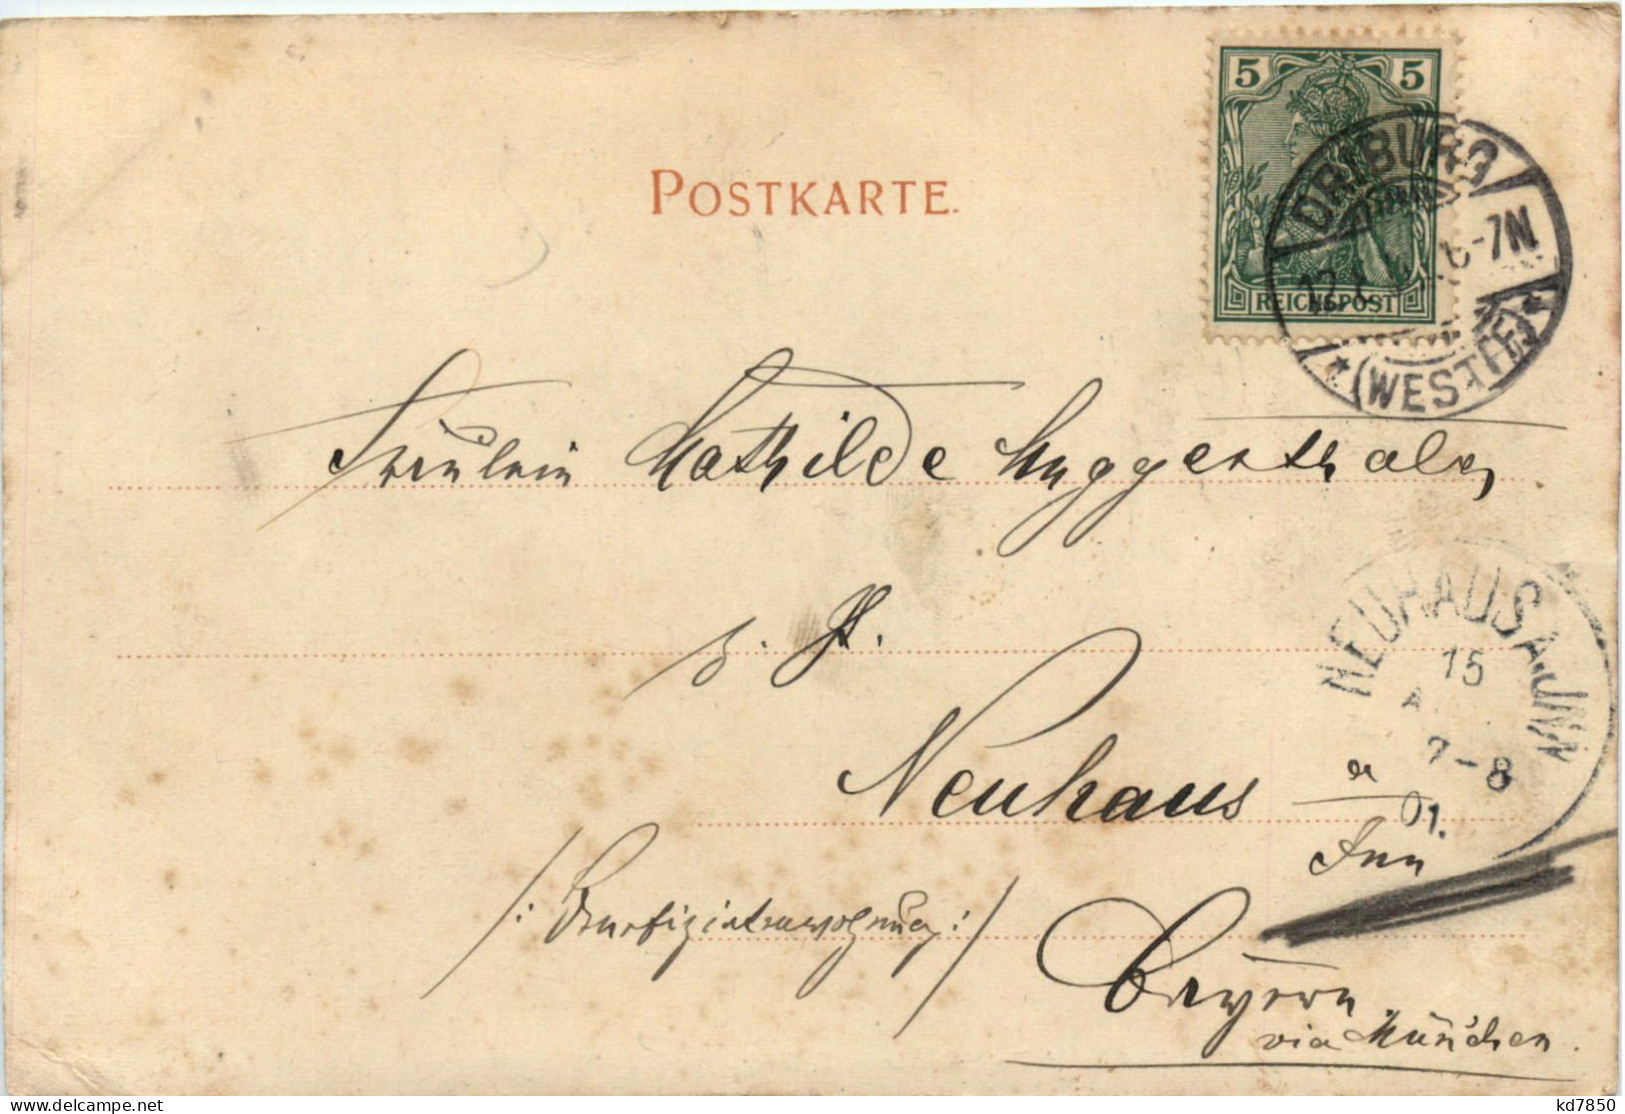 5 5
REICHSPOST
DRIBURG
6-7N.
* (WESTF.) *
POSTKARTE.
Fräulein Mathilde Huggenthaler
z. Z.
NEUHAUS A. INN
15
7-8
01.
Neuhaus a/Inn
/: Benefiziatenwohnung :/
Bayern
via München.
kd7850